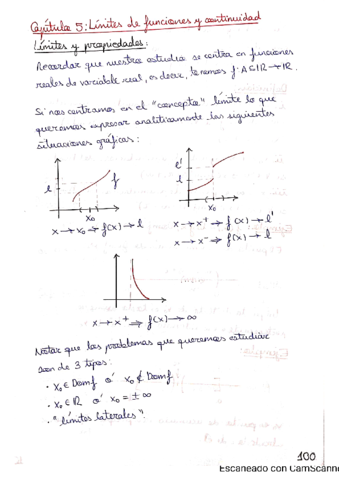 Capítulo 5: Límites de funciones y continuidad
Límites y propiedades:
Recordar que nuestro estudio se centra en funciones
reales de variable real, es decir, tenemos f: A⊆ℝ→ℝ.
Si nos centramos en el "concepto" límite lo que
queremos expresar analíticamente las siguientes
situaciones gráficas:
l
f
x₀
x → x₀ ⇒ f(x) → l
l'
l
x₀
x → x⁺ ⇒ f(x) → l'
x → x⁻ ⇒ f(x) → l
x → x⁺ ⇒ f(x) → ∞
Notar que los problemas que queremos estudiar
son de 3 tipos:
· x₀ ∈ Domf ó x₀ ∉ Domf
· x₀ ∈ ℝ ó x₀ = ± ∞
· "límites laterales".
100
Escaneado con CamScanner